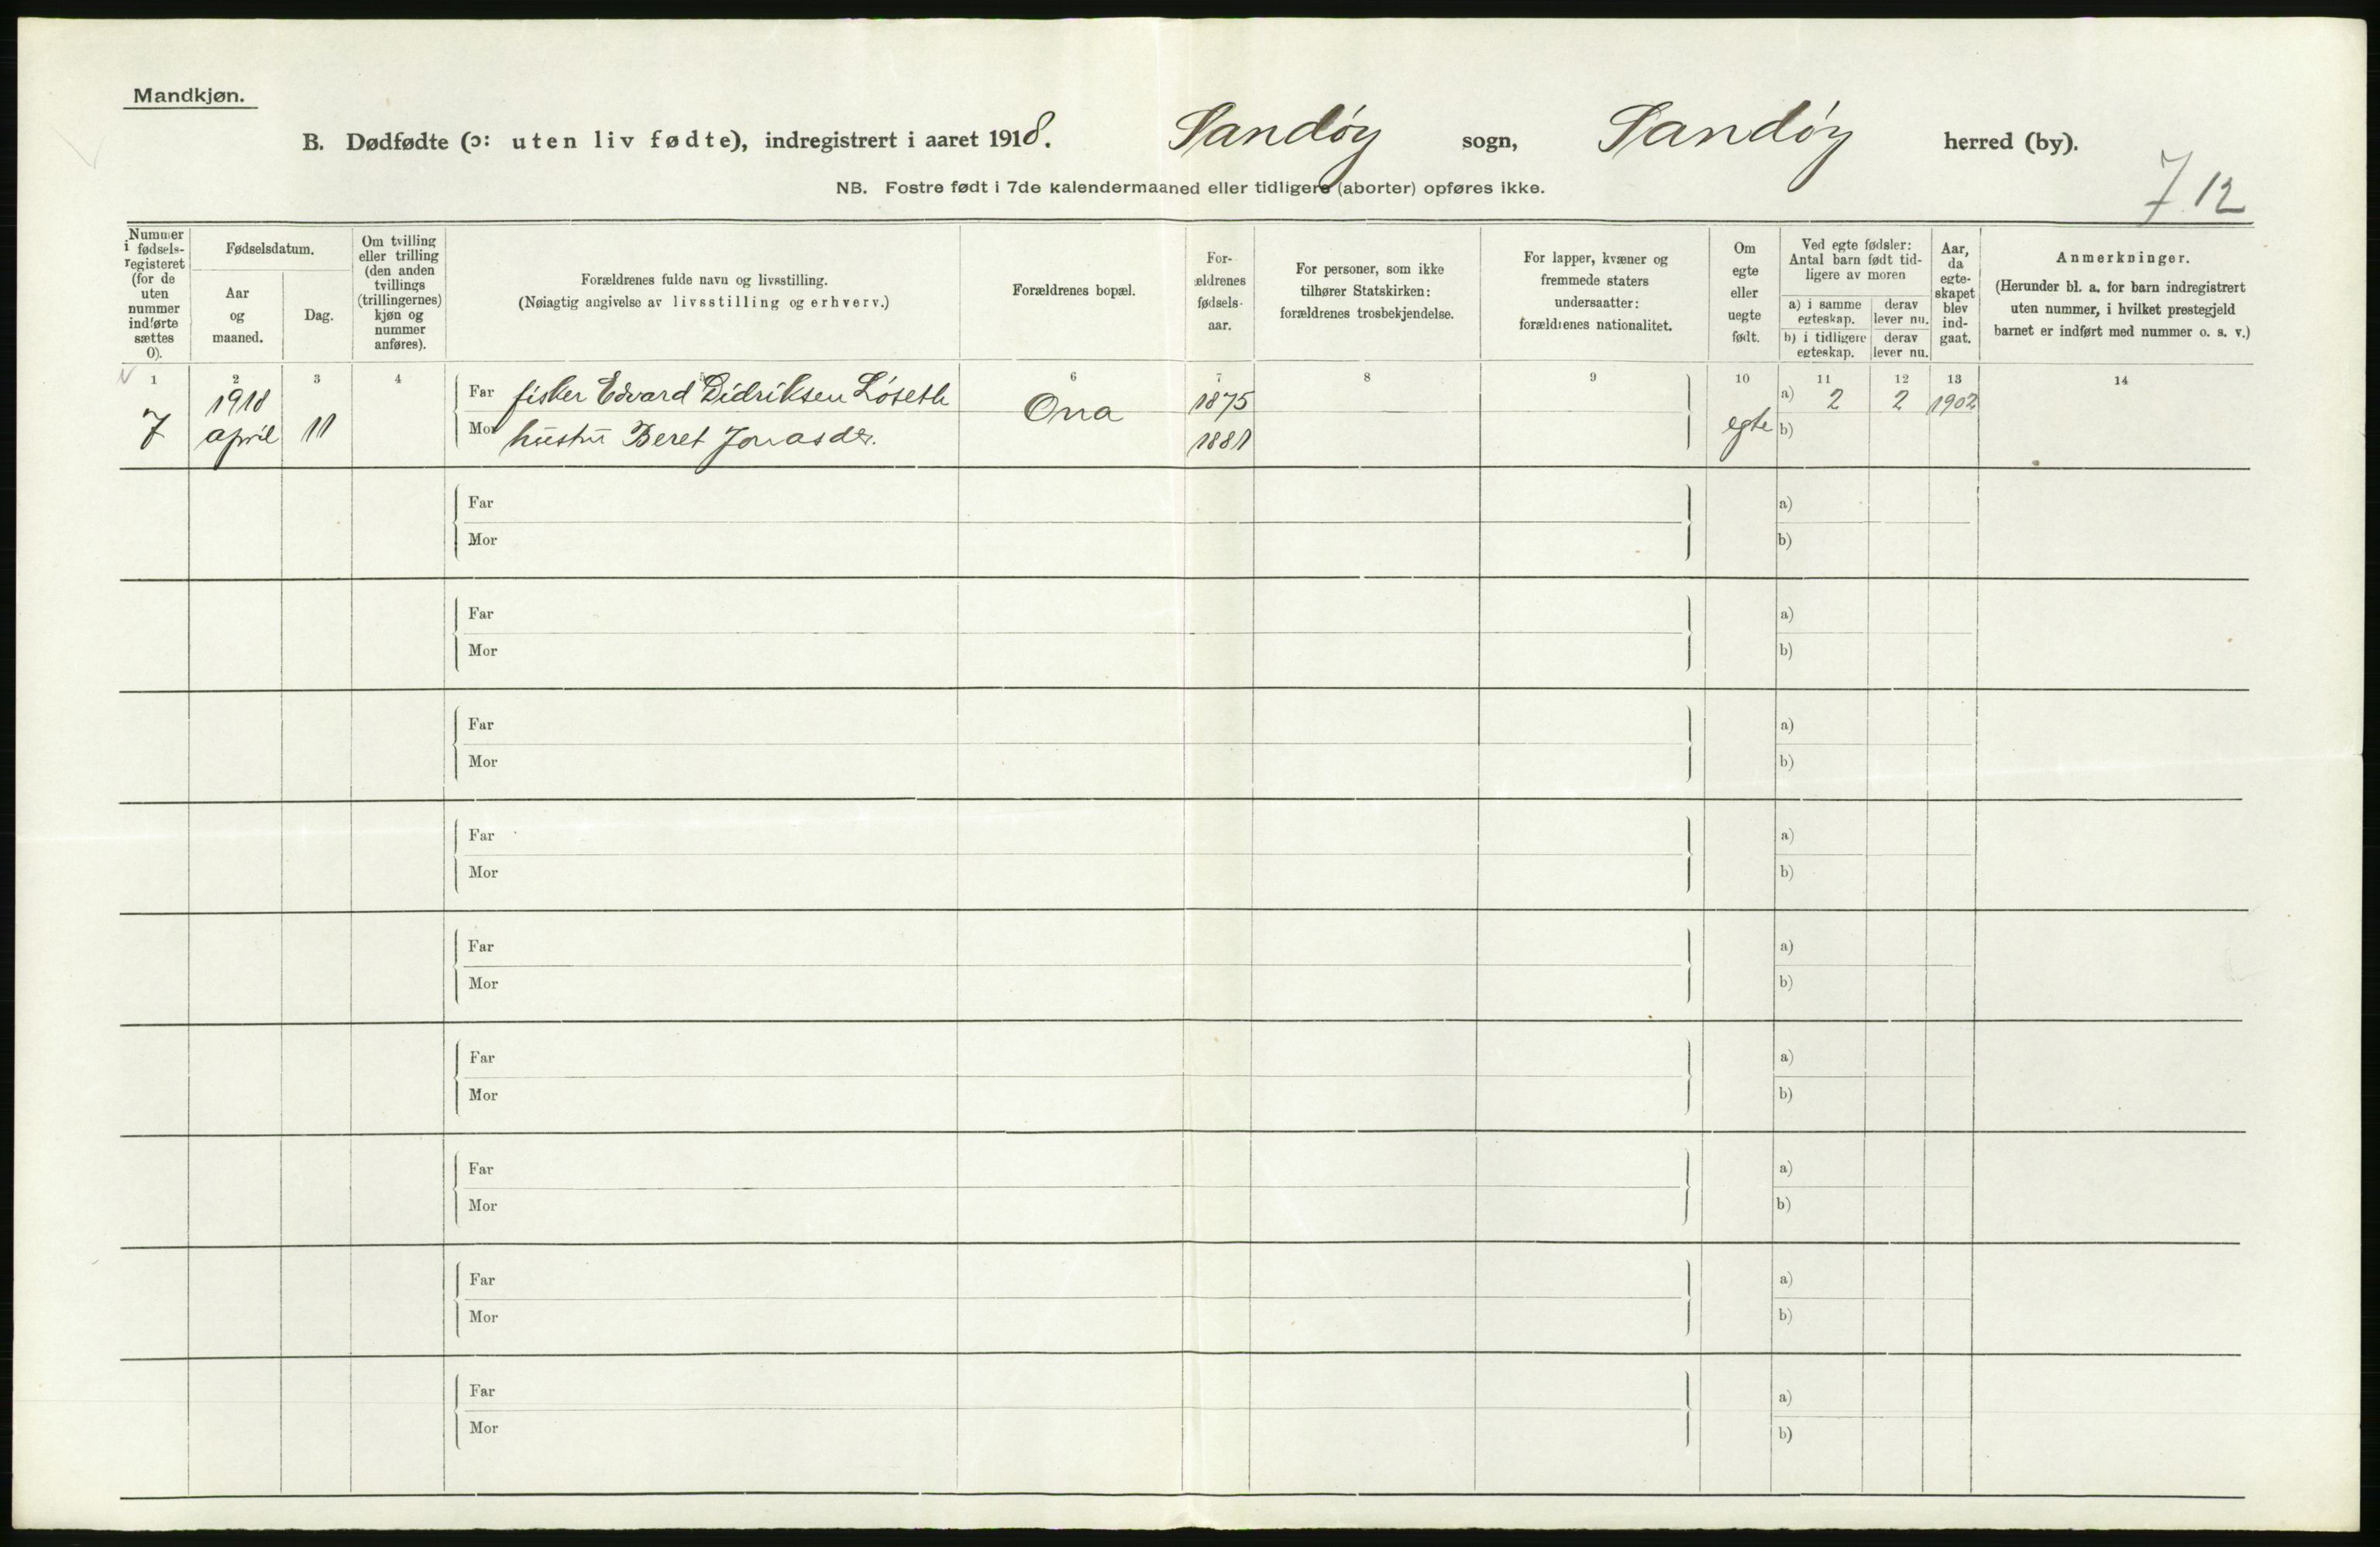 Mandkjøn.
B. Dødfødte (ɔ: uten liv fødte), indregistrert i aaret 1918. Sandöy sogn, Sandöy herred (by).
NB. Fostre født i 7de kalendermaaned eller tidligere (aborter) opføres ikke.
7 12
Nummer i fødsels-registeret (for de uten nummer indførte sættes 0).
Fødselsdatum.
Aar og maaned.
Dag.
Om tvilling eller trilling (den anden tvillings (trillingernes) kjøn og nummer anføres).
Forældrenes fulde navn og livsstilling.
(Nøiagtig angivelse av livsstilling og erhverv.)
Forældrenes bopæl.
For-ældrenes fødsels-aar.
For personer, som ikke tilhører Statskirken: forældrenes trosbekjendelse.
For lapper, kvæner og fremmede staters undersaatter: forældrenes nationalitet.
Om egte eller uegte født.
Ved egte fødsler: Antal barn født tid-ligere av moren
a) i samme egteskap.
derav lever nu.
b) i tidligere egteskap.
derav lever nu.
Aar, da egte-skapet blev ind-gaat.
Anmerkninger.
(Herunder bl. a. for barn indregistrert uten nummer, i hvilket prestegjeld barnet er indført med nummer o. s. v.)
1 2 3 4 5 6 7 8 9 10 11 12 13 14
7 1918 april 11 Far fisker Edvard Didriksen Löseth Ona 1875 egte a) 2 2 1902
Mor hustru Beret Jonasdr. 1881 b)
Far a)
Mor b)
Far a)
Mor b)
Far a)
Mor b)
Far a)
Mor b)
Far a)
Mor b)
Far a)
Mor b)
Far a)
Mor b)
Far a)
Mor b)
Far a)
Mor b)